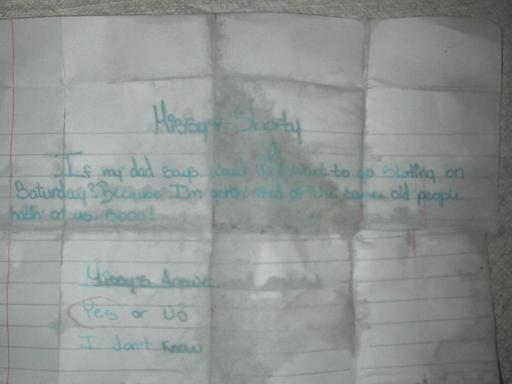 Missy + Shorty
If my dad says would you want to go skating on
Saturday? Because I'm gettin tired of the same old people
hatin' on us. Sooo!
Missy's Answer
Yes or No
I don't know